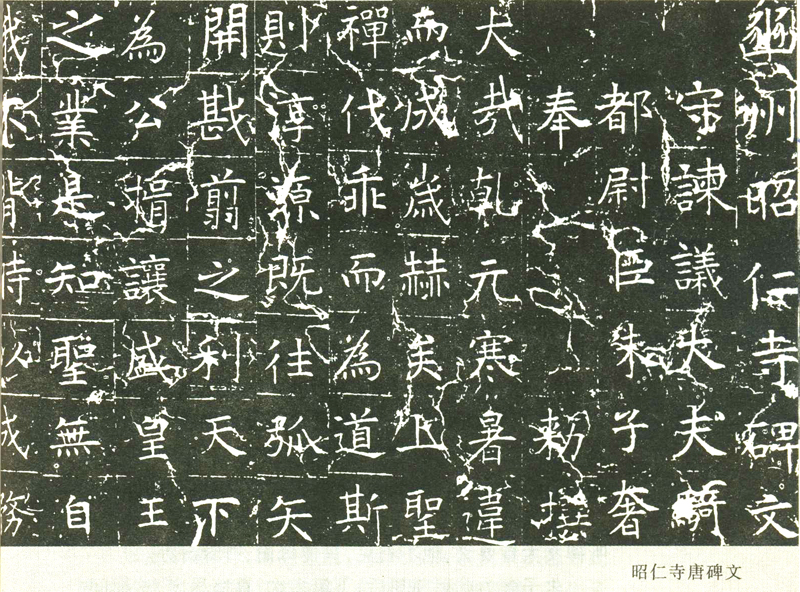 豳州昭仁寺碑文
守諫議大夫騎
都尉臣朱子奢
奉勑撰
大哉乾元寒暑違
而成歲赫矣上聖
禪代乖而為道斯
則淳源既往弧矢
開戡翦之利天下
為公揖讓盛皇王
之業是知聖無自
我不背時以成務
昭仁寺唐碑文